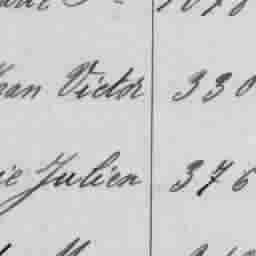 ean Victor 330
ie Julien 376